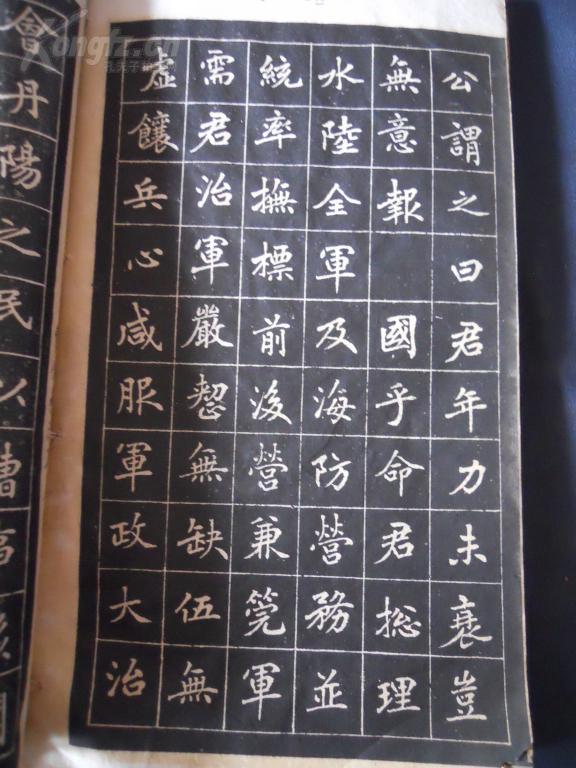 公謂之曰君年力未衰豈
無意報國乎命君捴理
水陸全軍及海防營務並
統率撫標前後營兼筦軍
需君治軍嚴愨無缺伍無
虛饟兵心咸服軍政大治
會丹陽之民以漕
Kongfz.cn